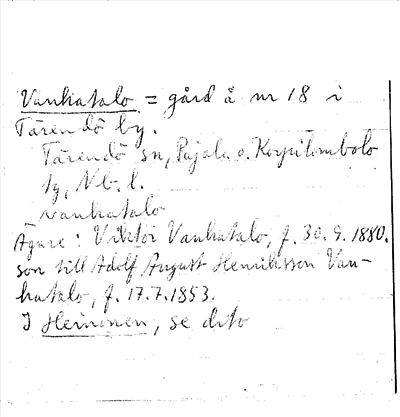 Vanhatalo = gård å nr 18 i
Tärendö by.
Tärendö sn, Pajala o. Korpilombolo
tg, Nb. l.
Vanhatalo
Ägare: Viktor Vanhatalo, f. 30.9.1880.
son till Adolf August Henriksson Van-
hatalo, f. 17.7.1853.
I Heinonen, se dito